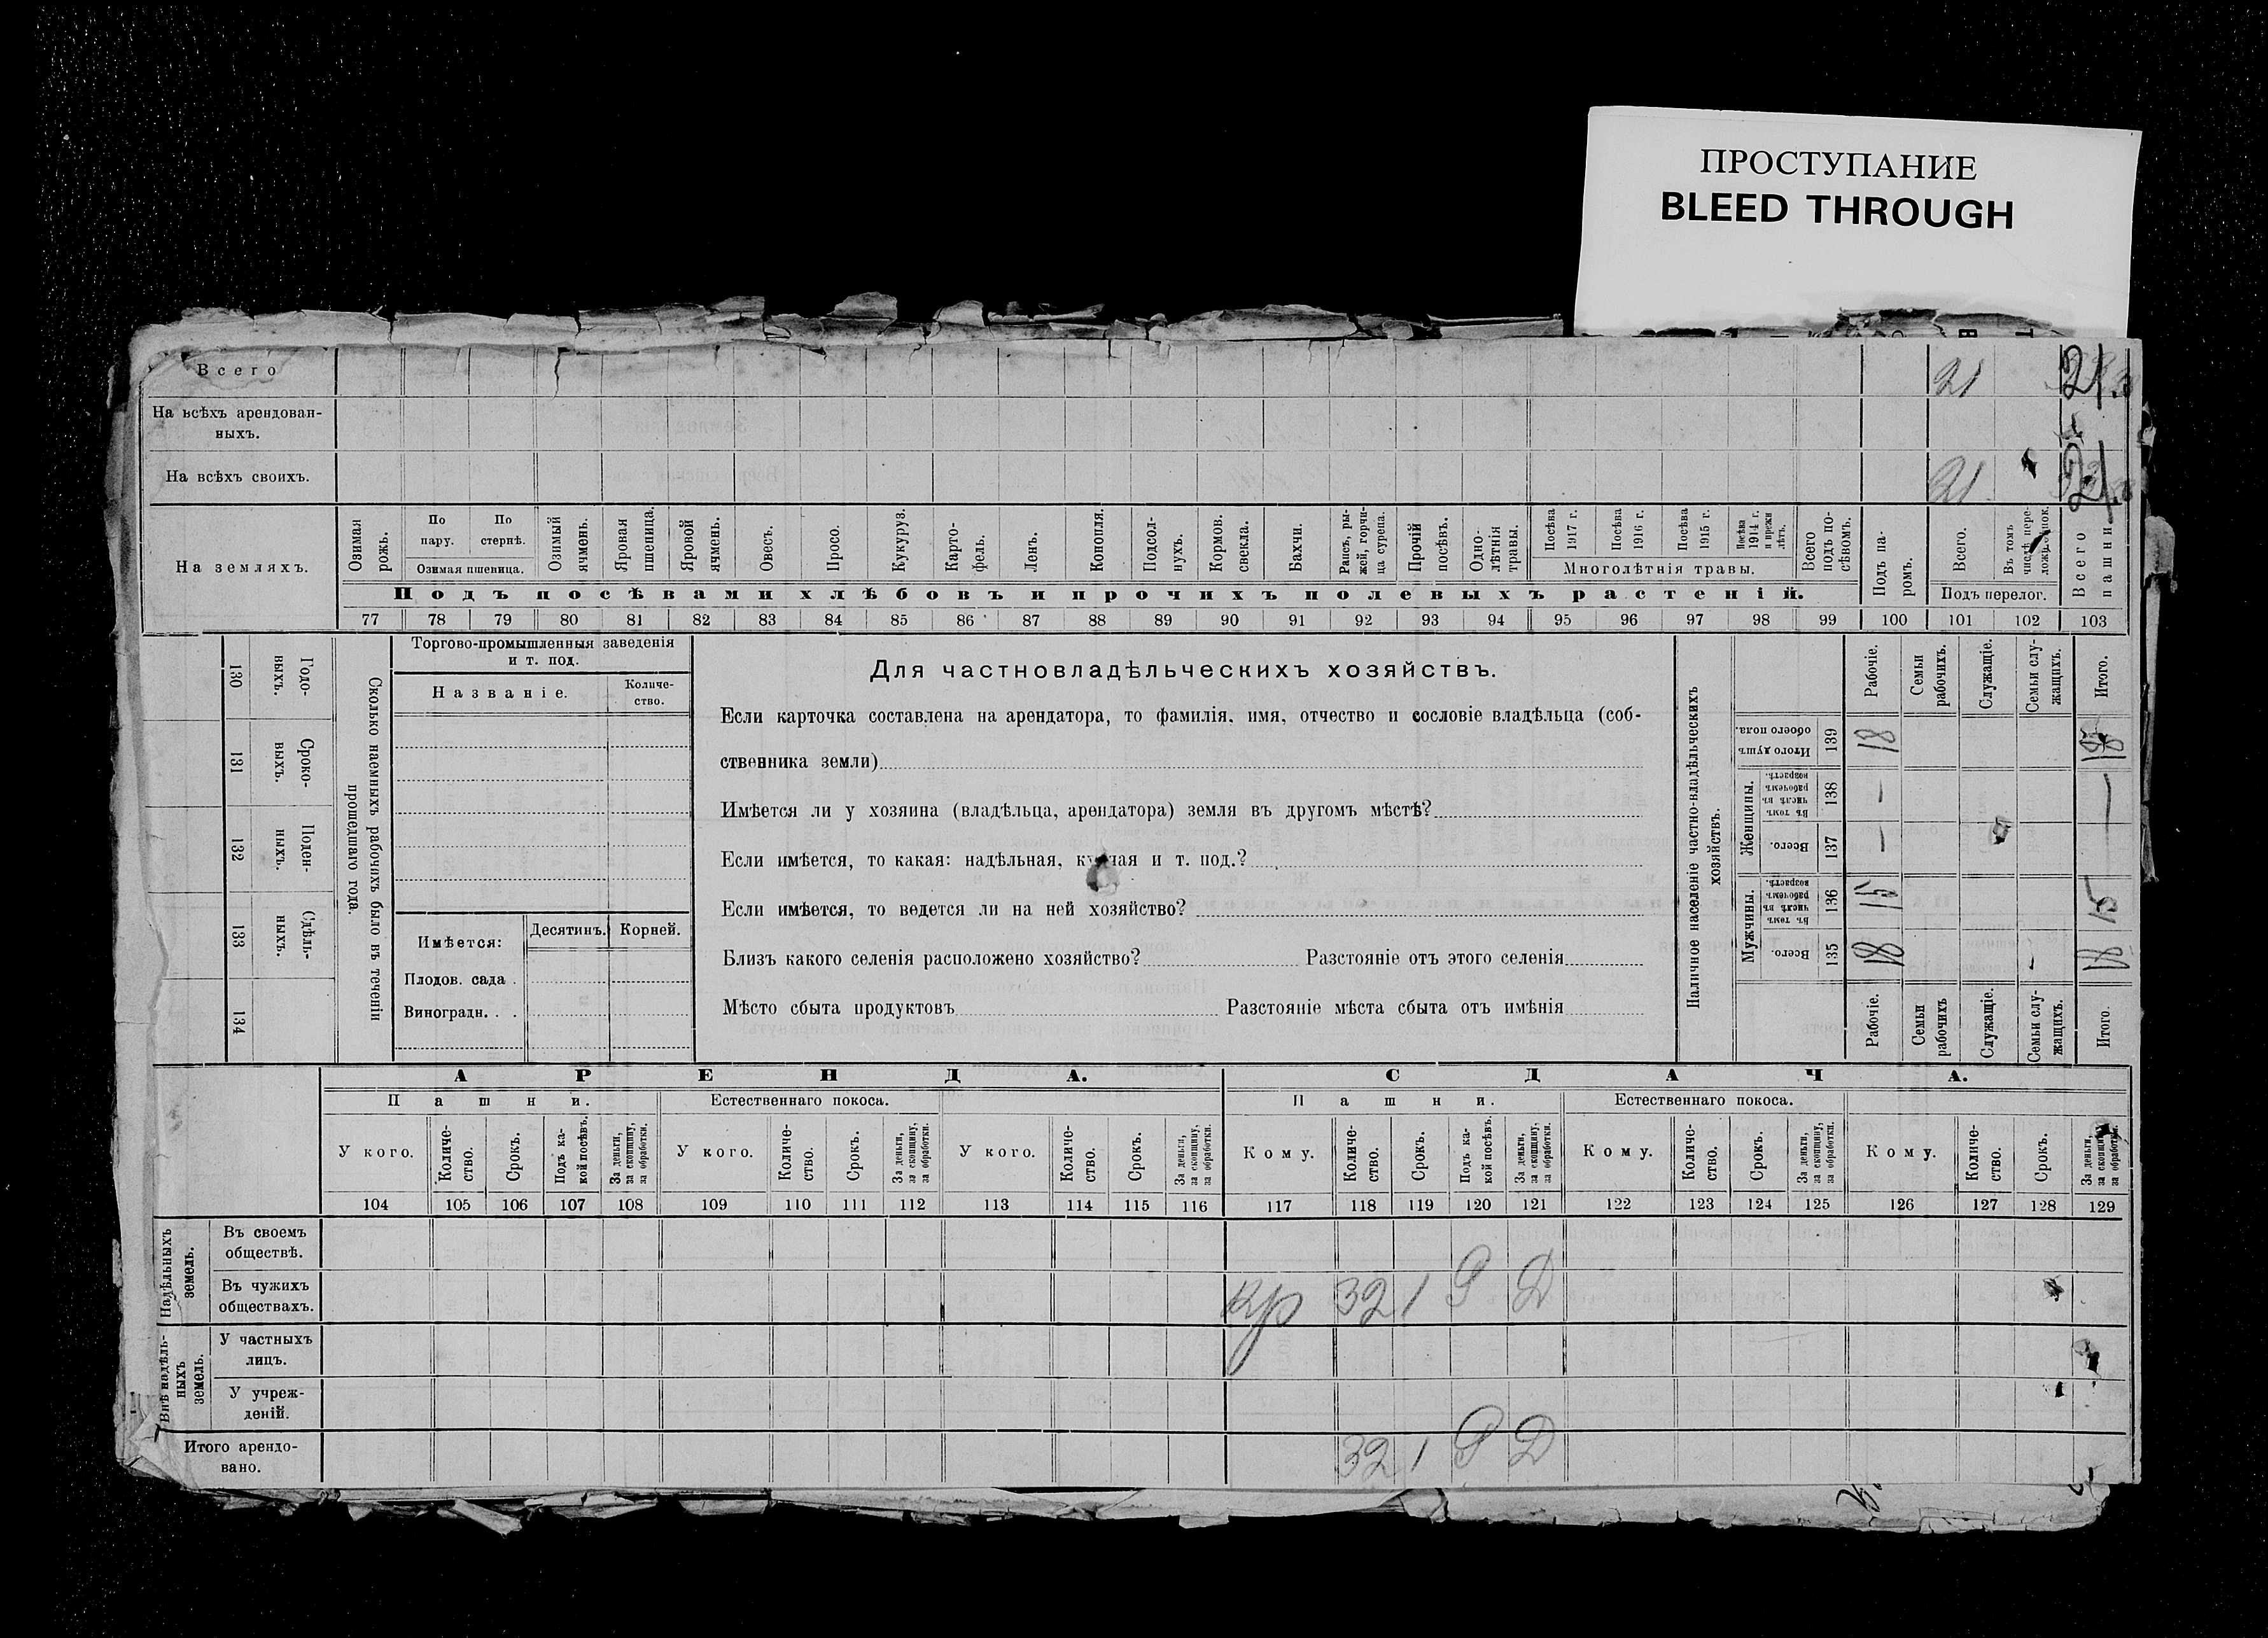 ПРОСТУПАНИЕ
BLEED THROUGH
Всего 21 21
На всѣхъ арендован-
ныхъ.
На всѣхъ своихъ. 21 21
На земляхъ.
Озимая рожь.
По пару.
По стернѣ.
Озимая пшеница.
Озимый ячмень.
Яровая пшеница.
Яровой ячмень.
Овесъ.
Просо.
Кукуруз.
Карто-
фель.
Ленъ.
Конопля.
Подсол-
нухъ.
Кормов. свекла.
Бахчи.
Рапсъ, ры-
жей, горчи-
ца сурепа.
Прочій посѣвъ.
Одно-
лѣтнія травы.
Посѣва 1917 г.
Посѣва 1916 г.
Посѣва 1915 г.
Посѣва 1914 г. и прежн лѣтъ.
Многолѣтнія травы.
Всего подъ по-
сѣвомъ.
Подъ па-
ромъ.
Всего.
Въ томъ числѣ пере-
Подъ перелог.
Всего пашни
Подъ посѣвами хлѣбовъ и прочихъ полевыхъ растеній.
77 78 79 80 81 82 83 84 85 86 87 88 89 90 91 92 93 94 95 96 97 98 99 100 101 102 103
130 Годо-
выхъ.
131 Сроко-
выхъ.
132 Поден-
ныхъ.
133 Сдѣль-
ныхъ.
134
Сколько наемныхъ рабочихъ было въ теченіи
прошедшаго года.
Торгово-промышленныя заведенія
и т. под.
Названіе.
Количе-
ство.
Имѣется:
Десятинъ. Корней.
Плодов. сада .
Виноградн. . .
Для частновладѣльческихъ хозяйствъ.
Если карточка составлена на арендатора, то фамилія, имя, отчество и сословіе владѣльца (соб-
ственника земли)
Имѣется ли у хозяина (владѣльца, арендатора) земля въ другомъ мѣстѣ?
Если имѣется, то какая: надѣльная, и т. под.?
Если имѣется, то ведется ли на ней хозяйство?
Близъ какого селенія расположено хозяйство? Разстояніе отъ этого селенія
Мѣсто сбыта продуктовъ Разстояніе мѣста сбыта отъ имѣнія
Наличное населеніе частно-владѣльческихъ
хозяйствъ.
Рабочіе.
Семьи рабочихъ.
Служащіе.
Семьи слу-
жащихъ.
Итого.
Итого душъ обоего пола. 139 18 18
Женщины.
Въ томъ числѣ въ рабочемъ возрастѣ. 138 — —
Всего. 137 —
Мужчины.
Въ томъ числѣ въ рабочемъ возрастѣ. 136 15 15
Всего. 135 18 18
Рабочіе.
Семьи рабочихъ
Служащіе.
Семьи слу-
жащихъ.
Итого.
АРЕНДА. СДАЧА.
Пашни. Естественнаго покоса. Пашни. Естественнаго покоса.
У кого.
Количе-
ство.
Срокъ.
Подъ ка-
кой посѣвъ.
За деньги, за скопщину, за обработки.
У кого.
Количе-
ство.
Срокъ.
За деньги, за скопщину, за обработки.
У кого.
Количе-
ство.
Срокъ.
За деньги, за скопщину, за обработки.
Кому.
Количе-
ство.
Срокъ.
Подъ ка-
кой посѣвъ.
За деньги, за скопщину, за обработки.
Кому.
Количе-
ство.
Срокъ.
За деньги, за скопщину, за обработки.
Кому.
Количе-
ство.
Срокъ.
За деньги, за скопщину, за обработки.
104 105 106 107 108 109 110 111 112 113 114 115 116 117 118 119 120 121 122 123 124 125 126 127 128 129
Надѣльныхъ
земель.
Въ своемъ
обществѣ.
Въ чужихъ
обществахъ.
Кр 32 1 Д
Внѣ надѣль-
ныхъ
земель.
У частныхъ
лицъ.
У учреж-
деній.
Итого арендо-
вано.
32 1 Д